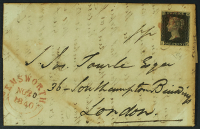 Jno Towle Esqre
36 Southampton Buildings
London
EMSWORTH
1840